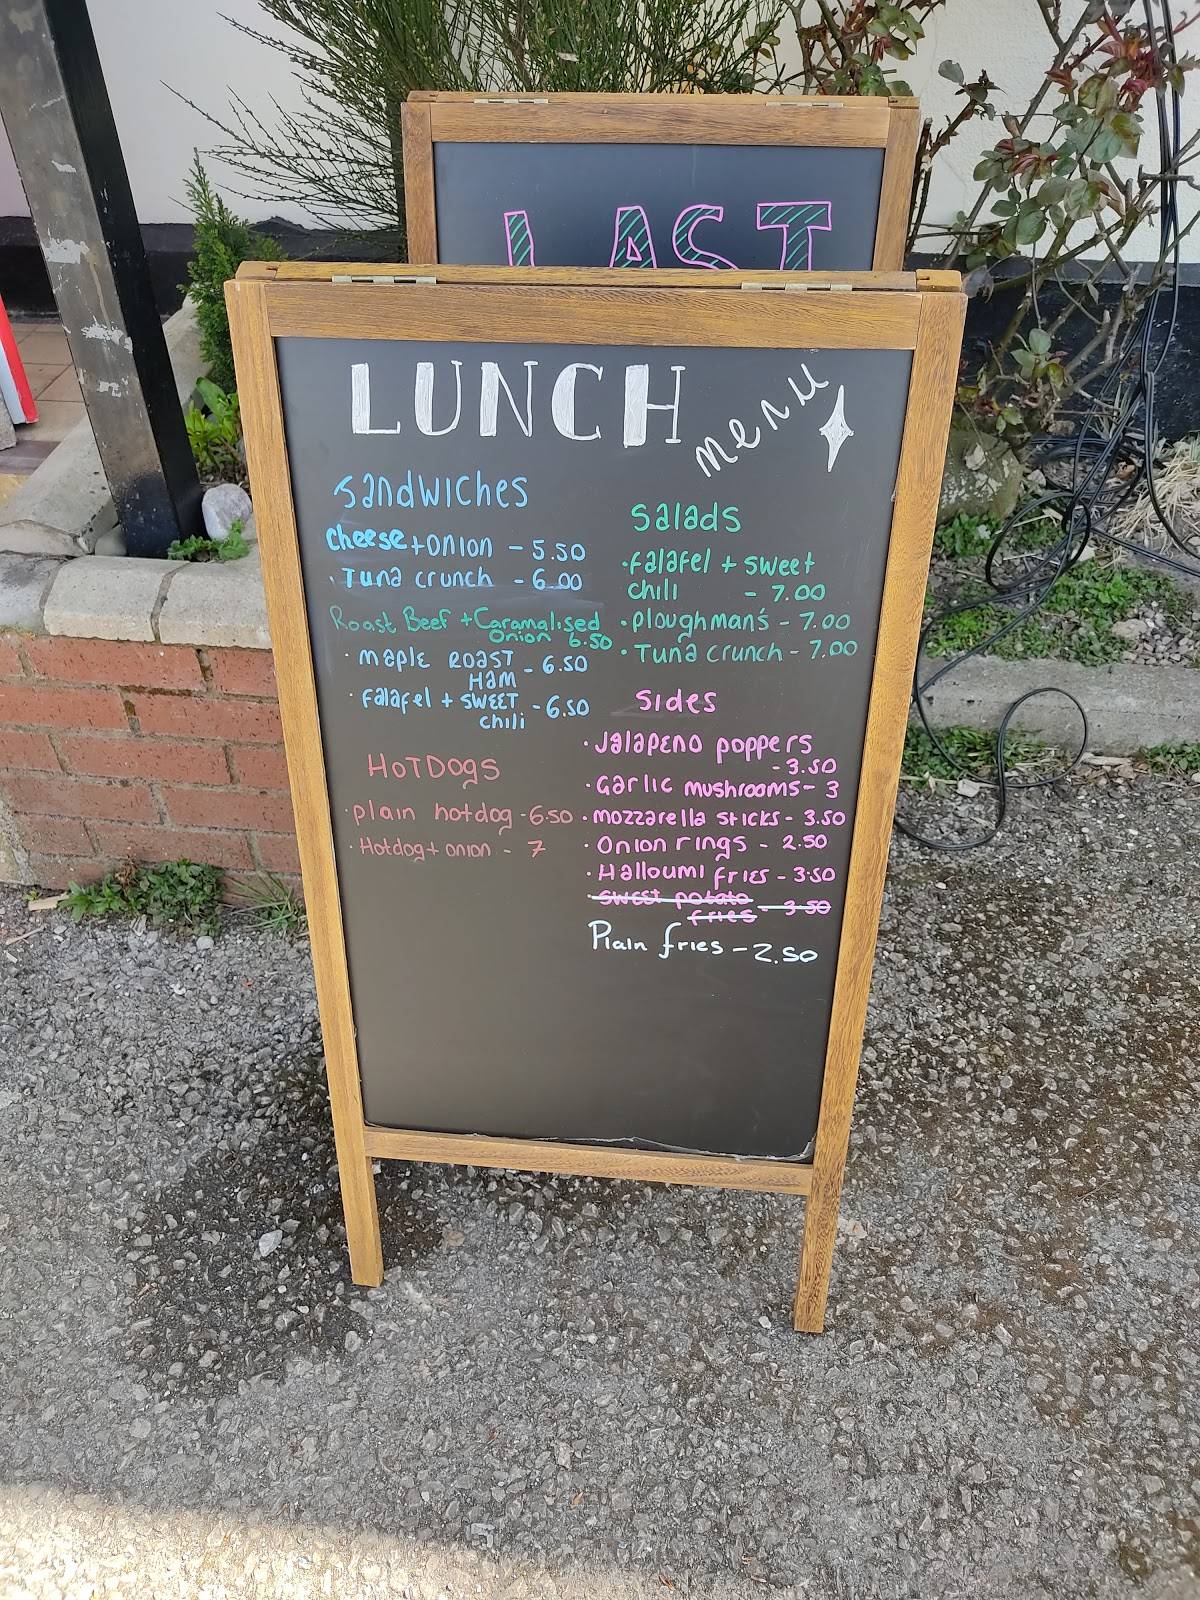 LAST
LUNCH menu
Sandwiches
cheese + onion - 5.50
· Tuna crunch - 6.00
Roast Beef + Caramalised
onion 6.50
· maple ROAST
HAM - 6.50
· falafel + SWEET
chili - 6.50
HOTDOgS
· plain hotdog - 6.50
· Hotdog + onion - 7
Salads
· falafel + sweet
chili - 7.00
· ploughman's - 7.00
· Tuna crunch - 7.00
Sides
· Jalapeno poppers
- 3.50
· Garlic mushrooms - 3
· mozzarella sticks - 3.50
· Onion rings - 2.50
· Halloumi fries - 3.50
sweet potato
fries - 3.50
Plain fries - 2.50